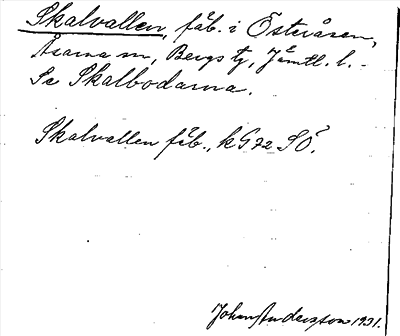 Skalvallen, fäb. i Österåsen,
Åsarna sn, Bergs tg, Jämtl. l.-
Se Skalbodarna.
Skalvallen fäb., k G 72 SÖ.
Johan Andersson 1931.